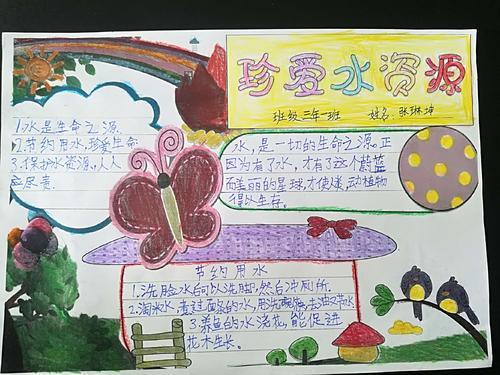 珍爱水资源
班级三年一班 姓名:张琳坤
1.水是生命之源.
2.节约用水,珍爱生命.
3.保护水资源,人人
应尽责.
水,是一切的生命之源。正
因为有了水,才有了这个蔚蓝
而美丽的星球,才使人类,动植物
得以生存。
节约用水
1.洗脸水可以洗脚,然后冲厕所.
2.淘米水,煮过面条的水,用洗碗筷,去油又节水
3.养鱼的水浇花,能促进
花木生长。